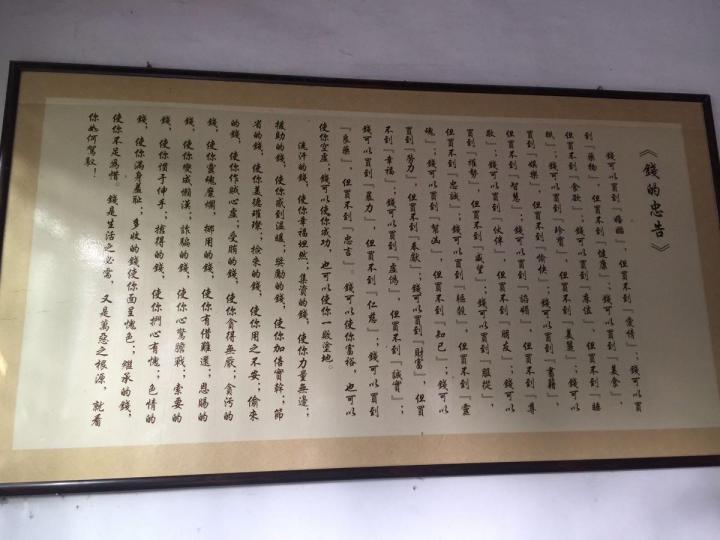 《錢的忠告》
錢可以買到『婚姻』，但買不到『愛情』；錢可以買
到『藥物』，但買不到『健康』；錢可以買到『美食』，
但買不到『食欲』；錢可以買到『床位』，但買不到『睡
眠』；錢可以買到『珍寶』，但買不到『美麗』；錢可以
買到『娛樂』，但買不到『愉快』；錢可以買到『書籍』，
但買不到『智慧』；錢可以買到『諂媚』，但買不到『尊
敬』；錢可以買到『伙伴』，但買不到『朋友』；錢可以
買到『權勢』，但買不到『威望』；錢可以買到『服從』，
但買不到『忠誠』；錢可以買到『軀殼』，但買不到『靈
魂』；錢可以買到『幫凶』，但買不到『知己』；錢可以
買到『勞力』，但買不到『奉獻』；錢可以買到『財富』，但買
不到『幸福』；錢可以買到『虛偽』，但買不到『誠實』；
錢可以買到『暴力』，但買不到『仁慈』；錢可以買到
『良藥』，但買不到『忠言』。錢可以使你富裕，也可以
使你空虛；錢可以使你成功，也可以使你一敗塗地。
流汗的錢，使你幸福坦然；集資的錢，使你力量無邊；
援助的錢，使你感到溫暖；獎勵的錢，使你加倍實幹；節
省的錢，使你美德璀璨；撿來的錢，使你用之不安；偷來
的錢，使你作賊心虛；受賄的錢，使你貪得無厭；貪污的
錢，使你靈魂糜爛，挪用的錢，使你有借難還；恩賜的
錢，使你變成懶漢；詐騙的錢，使你心驚膽戰；索要的
錢，使你慣于伸手；揩得的錢，使你捫心有愧；色情的
錢，使你滿身羞恥；多收的錢使你面呈愧色；繼承的錢，
使你不足為惜。錢是生活之必需，又是萬惡之根源，就看
你如何駕馭！